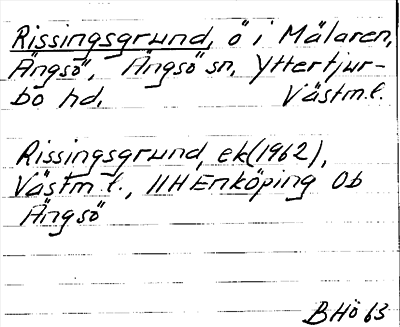 Rissingsgrund, ö i Mälaren,
Ängsö, Ängsö sn, Yttertjur-
bo hd, Västm.l.
Rissingsgrund, ek(1962),
Västm.l., 11H Enköping Ob
Ängsö
BHö 63